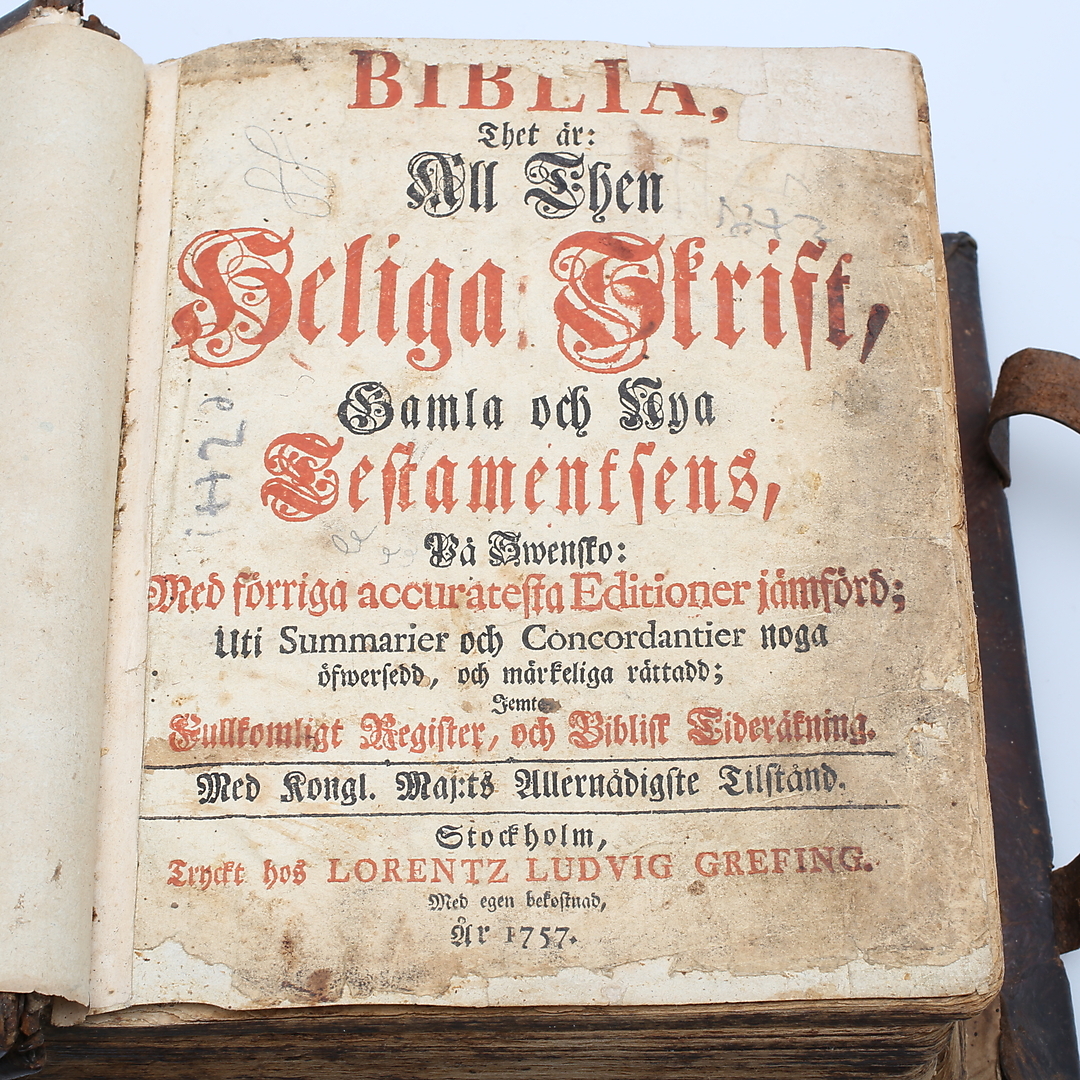 BIBLIA,
Thet är:
All Then
Heliga Skrift,
Gamla och Nya
Testamentsens,
På Swensko:
Med förriga accuratesta Editioner jämförd;
Uti Summarier och Concordantier noga
öfwersedd, och märkeliga rättadd;
Jemte
Fullkomligt Register, och Biblisk Tideräkning.
Med Kongl. Maj:ts Allernådigste Tilstånd.
Stockholm,
Tryckt hos LORENTZ LUDVIG GREFING.
Med egen bekostnad,
År 1757.